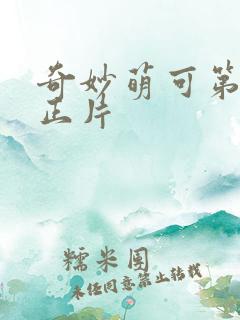 奇妙萌可第
正片
糯米团
未经同意禁止转载